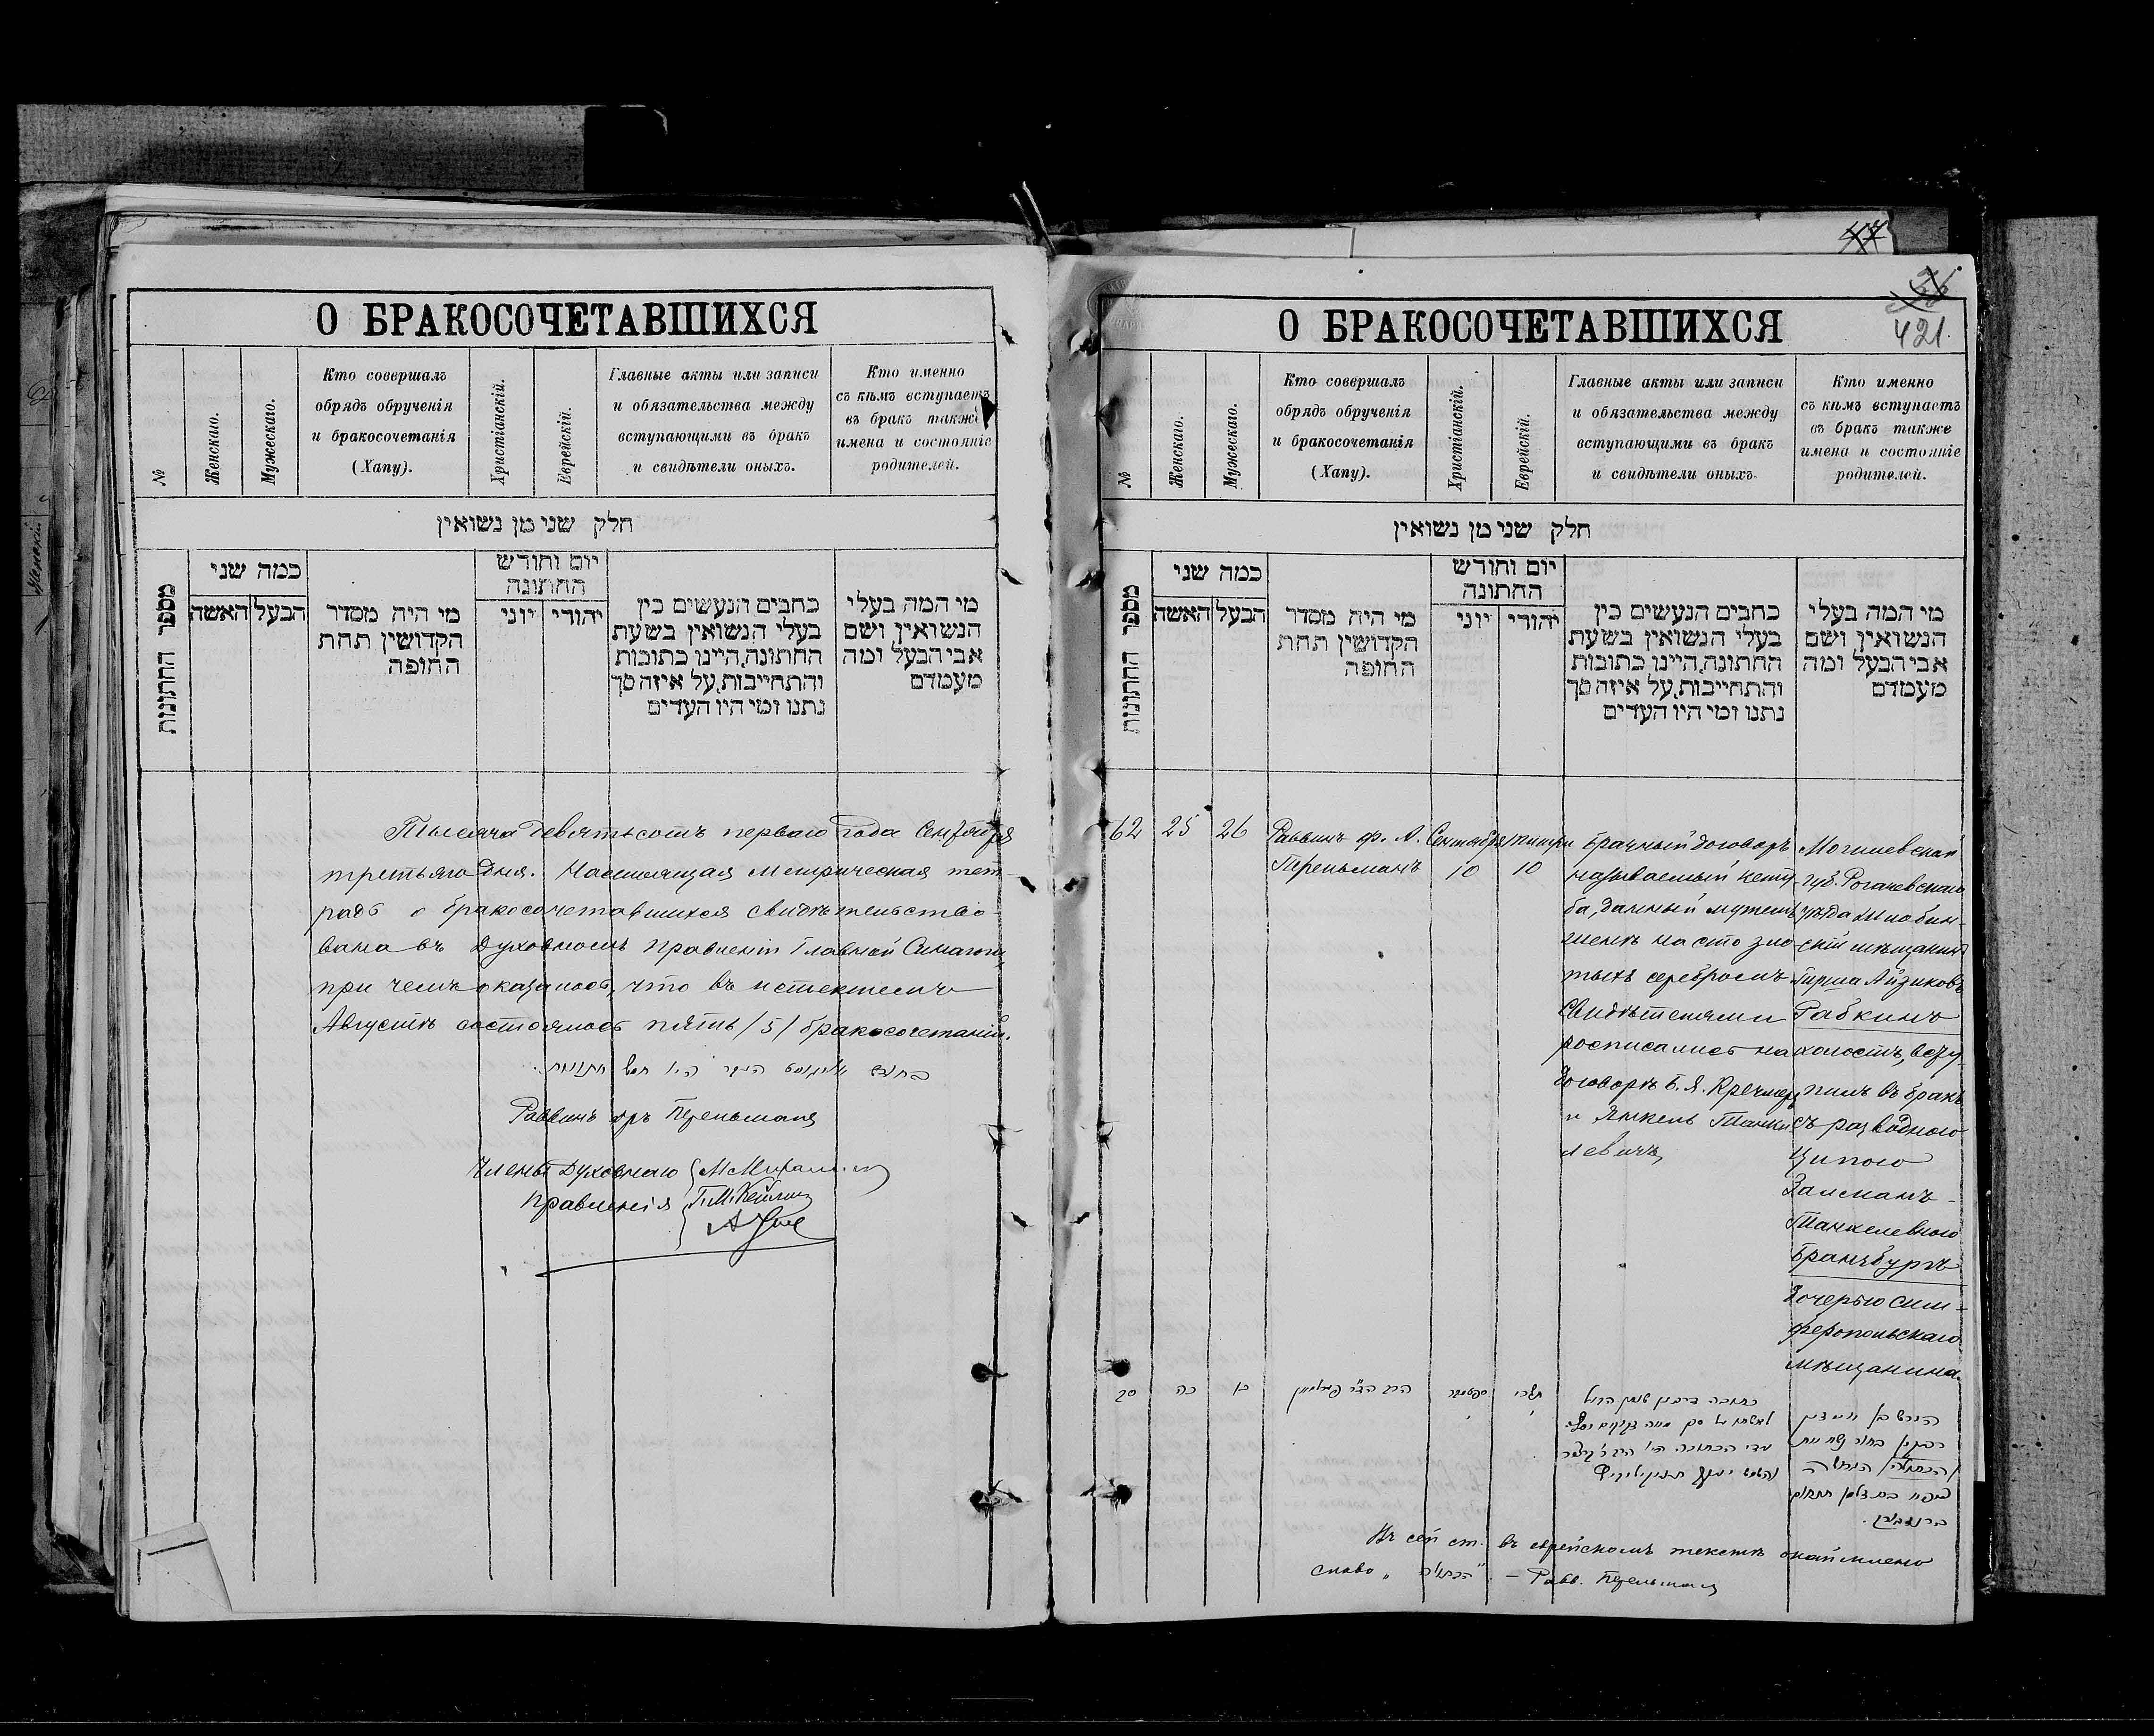 О БРАКОСОЧЕТАВШИХСЯ
№
Женскаго.
Мужескаго.
Кто совершалъ
обрядъ обрученія
и бракосочетанія
(Хапу).
Христіанскій.
Еврейскій.
Главные акты или записи
и обязательства между
вступающими въ бракъ
и свидѣтели оныхъ.
Кто именно
съ кѣмъ вступаетъ
въ бракъ также
имена и состояніе
родителей.
חלק שני מן נשואין
מספר החתונות
כמה שני
האשה
הבעל
מי היה מסדר
הקדושין תחת
החופה
יום וחודש
החתונה
יוני
יהודי
כתבים הנעשים בין
בעלי הנשואין בשעת
החתונה, היינו כתובות
והתחייבות, על איזה סך
נתנו ומי היו העדים
מי המה בעלי
הנשואין, ושם
אבי הבעל, ומה
מעמדם
Тысяча девятьсотъ перваго года Сентября
третьяго дня. Настоящая метрическая тет-
радь о бракосочетавшихся свидѣтельство-
вана въ Духовномъ Правленіи Главной Синагоги,
при чемъ оказалось, что въ истекшемъ
Августѣ состоялось пять /5/ бракосочетаній.
בחודש אוגוסט העבר היו חמש חתונות.
Раввинъ дръ Перельманъ
Члены Духовнаго
Правленія
47
421.
О БРАКОСОЧЕТАВШИХСЯ
№
Женскаго.
Мужескаго.
Кто совершалъ
обрядъ обрученія
и бракосочетанія
(Хапу).
Христіанскій.
Еврейскій.
Главные акты или записи
и обязательства между
вступающими въ бракъ
и свидѣтели оныхъ.
Кто именно
съ кѣмъ вступаетъ
въ бракъ также
имена и состояніе
родителей.
חלק שני מן נשואין
מספר החתונות
כמה שני
האשה
הבעל
מי היה מסדר
הקדושין תחת
החופה
יום וחודש
החתונה
יוני
יהודי
כתבים הנעשים בין
בעלי הנשואין בשעת
החתונה, היינו כתובות
והתחייבות, על איזה סך
נתנו ומי היו העדים
מי המה בעלי
הנשואין, ושם
אבי הבעל, ומה
מעמדם
62
25
26
Раввинъ
Перельманъ
Сентября
10
Тишри
10
Брачный договоръ
называемый кету-
ба, данный мужемъ
женѣ на сто зло-
тыхъ серебромъ
Свидѣтелями
росписались на
договорѣ Б. Я. Кречмеръ
и Янкель Танхи-
левичъ,
Могилевской
губ. Рогачевскаго
уѣзда
мѣщанинъ
Гирша Айзиковъ
Рабкинъ
холостъ, всту-
пилъ въ бракъ
съ разводною
Ципою
Залманъ-
Танхелевною
Бранбургъ
дочерью Сим-
феропольскаго
мѣщанина.
סב
כה
כו
ספטמבר
י
תשרי
י
Въ сей ст. въ еврейскомъ текстѣ
слово
— Равв. Перельманъ